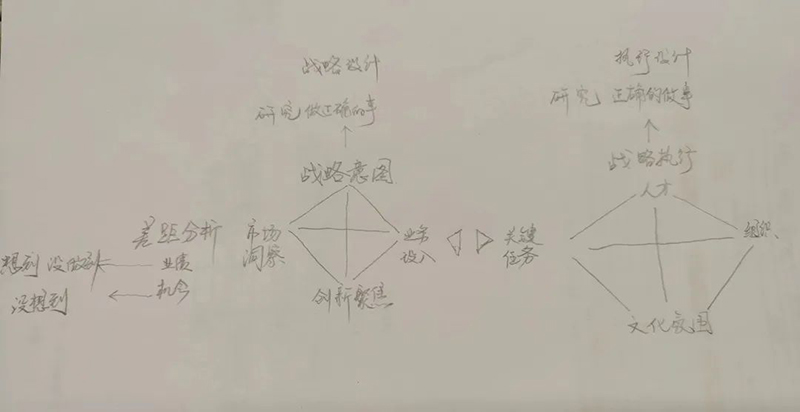 战略设计
研究 做正确的事
战略意图
市场洞察
业务设入
创新聚焦
差距分析
业绩
想到 没做到
机会
没想到
执行设计
研究 正确的做事
战略执行
人才
关键任务
组织
文化氛围